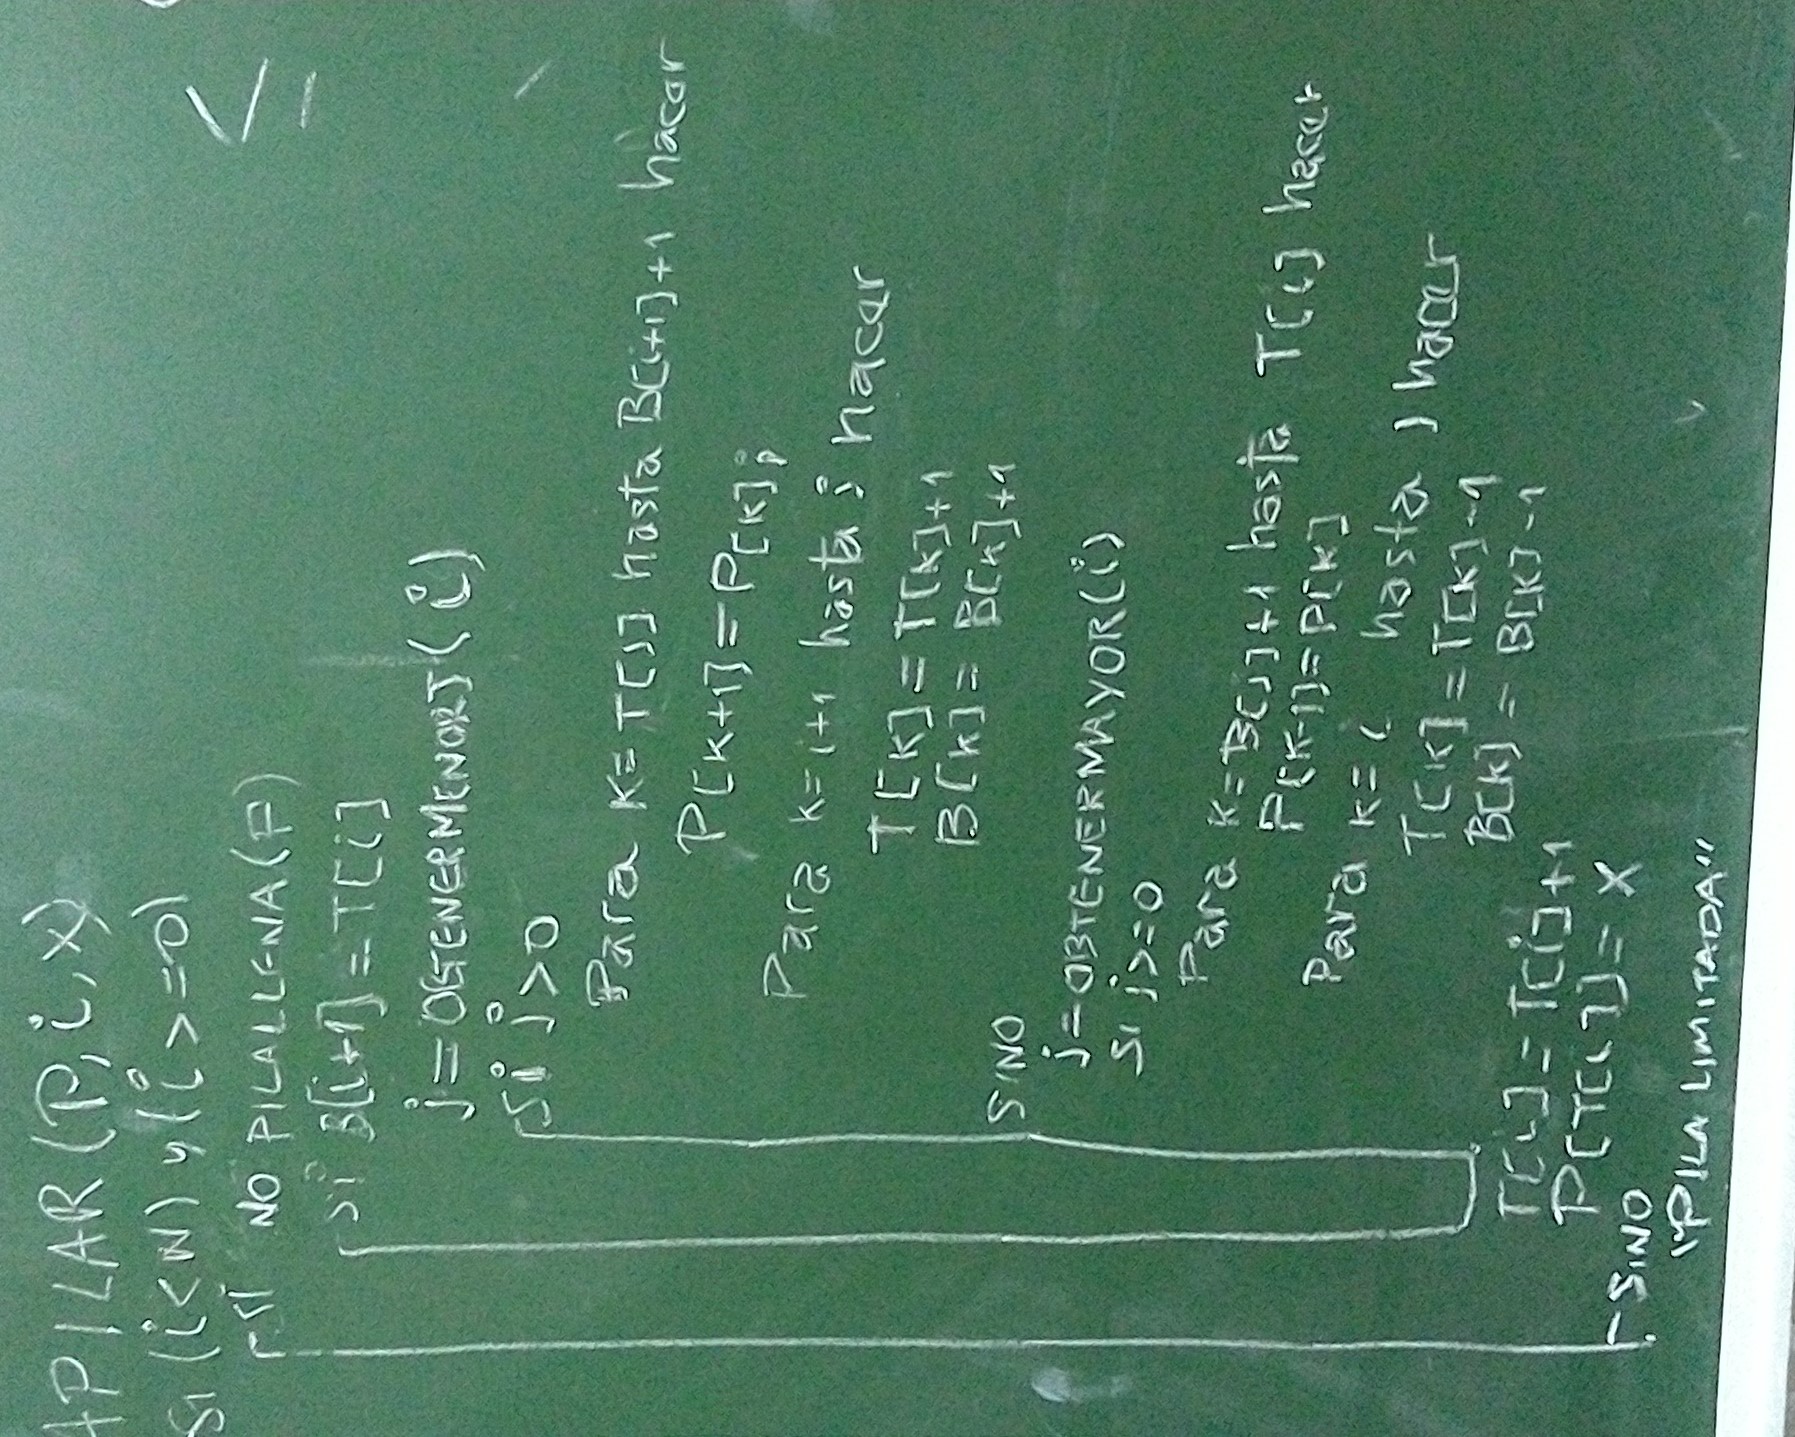 APILAR(P,i,x)
Si (i<N) y (i>=0)
Si NO PILALLENA(P)
Si B[i+1]=T[i]
j=OBTENERMENORJ(i)
Si j>0
Para K=T[j] hasta B[i+1]+1 hacer
P[K+1]=P[K];
Para K=i+1 hasta j hacer
T[K]=T[K]+1
B[K]=B[K]+1
SINO
j=OBTENERMAYOR(i)
Si j>=0
Para K=B[j]+1 hasta T[i] hacer
P[K-1]=P[K]
Para K=i hasta j hacer
T[K]=T[K]-1
B[K]=B[K]-1
T[i]=T[i]+1
P[T[i]]=X
SINO
"PILA LIMITADA"